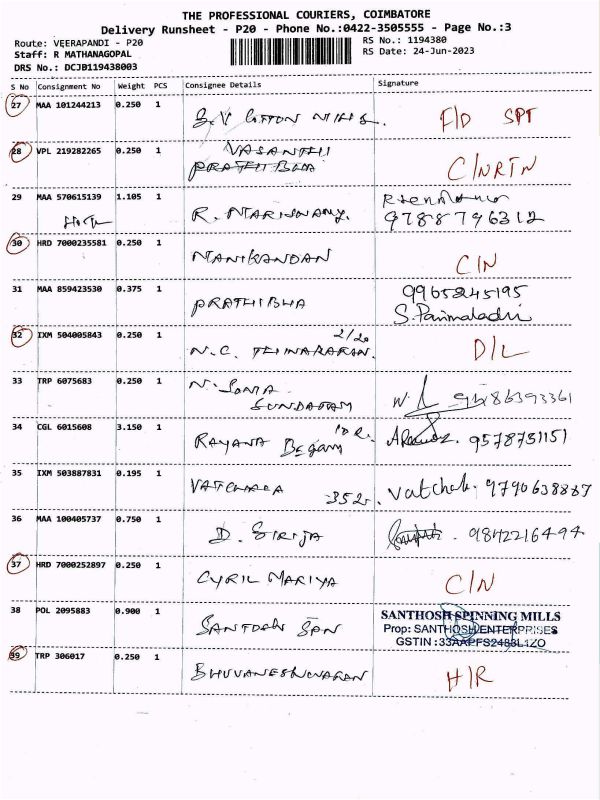 THE PROFESSIONAL COURIERS, COIMBATORE
Delivery Runsheet - P20 - Phone No.:0422-3505555 - Page No.:3
Route: VEERAPANDI - P20
RS No.: 1194380
Staff: R MATHANAGOPAL
RS Date: 24-Jun-2023
DRS No.: DCJB119438003
S No Consignment No Weight PCS Consignee Details Signature
27 MAA 101244213 0.250 1 F/D SPT
28 VPL 219282265 0.250 1 VASANTHI
PRATHIBHA C/NRTN
29 MAA 570615139 1.105 1 R. 9788796312
30 HRD 7000235581 0.250 1 MANIKANDAN C/N
31 MAA 859423530 0.375 1 PRATHIBHA 9965245195
S. Parimaladevi
32 IXM 504005843 0.250 1 N.C. D/L
33 TRP 6075683 0.250 1 N. SOMA
SUNDARAM 9486393361
34 CGL 6015608 3.150 1 RAYANA Begam 9578731151
35 IXM 503887831 0.195 1 VATCHALA 352 Vatchala. 9790638887
36 MAA 100405737 0.750 1 D. SIRIJA 9842216494
37 HRD 7000252897 0.250 1 CYRIL MARIYA C/N
38 POL 2095883 0.900 1 SANTOSH SPN SANTHOSH SPINNING MILLS
Prop: SANTHOSH ENTERPRISES
GSTIN :33AAPFS2483L1ZO
39 TRP 306017 0.250 1 BHUVANESHWARAN H/R